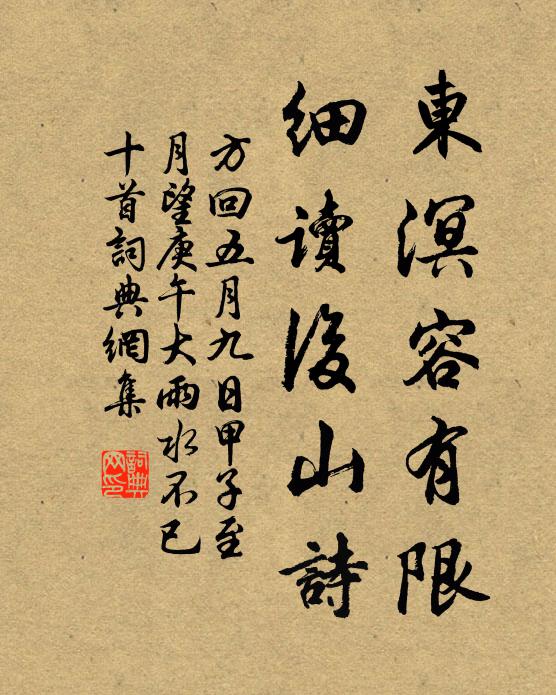 東溟容有限
細讀後山詩
方回五月九日甲子至
月望庚午大雨水不已
十首詞典網集
詞典
网印